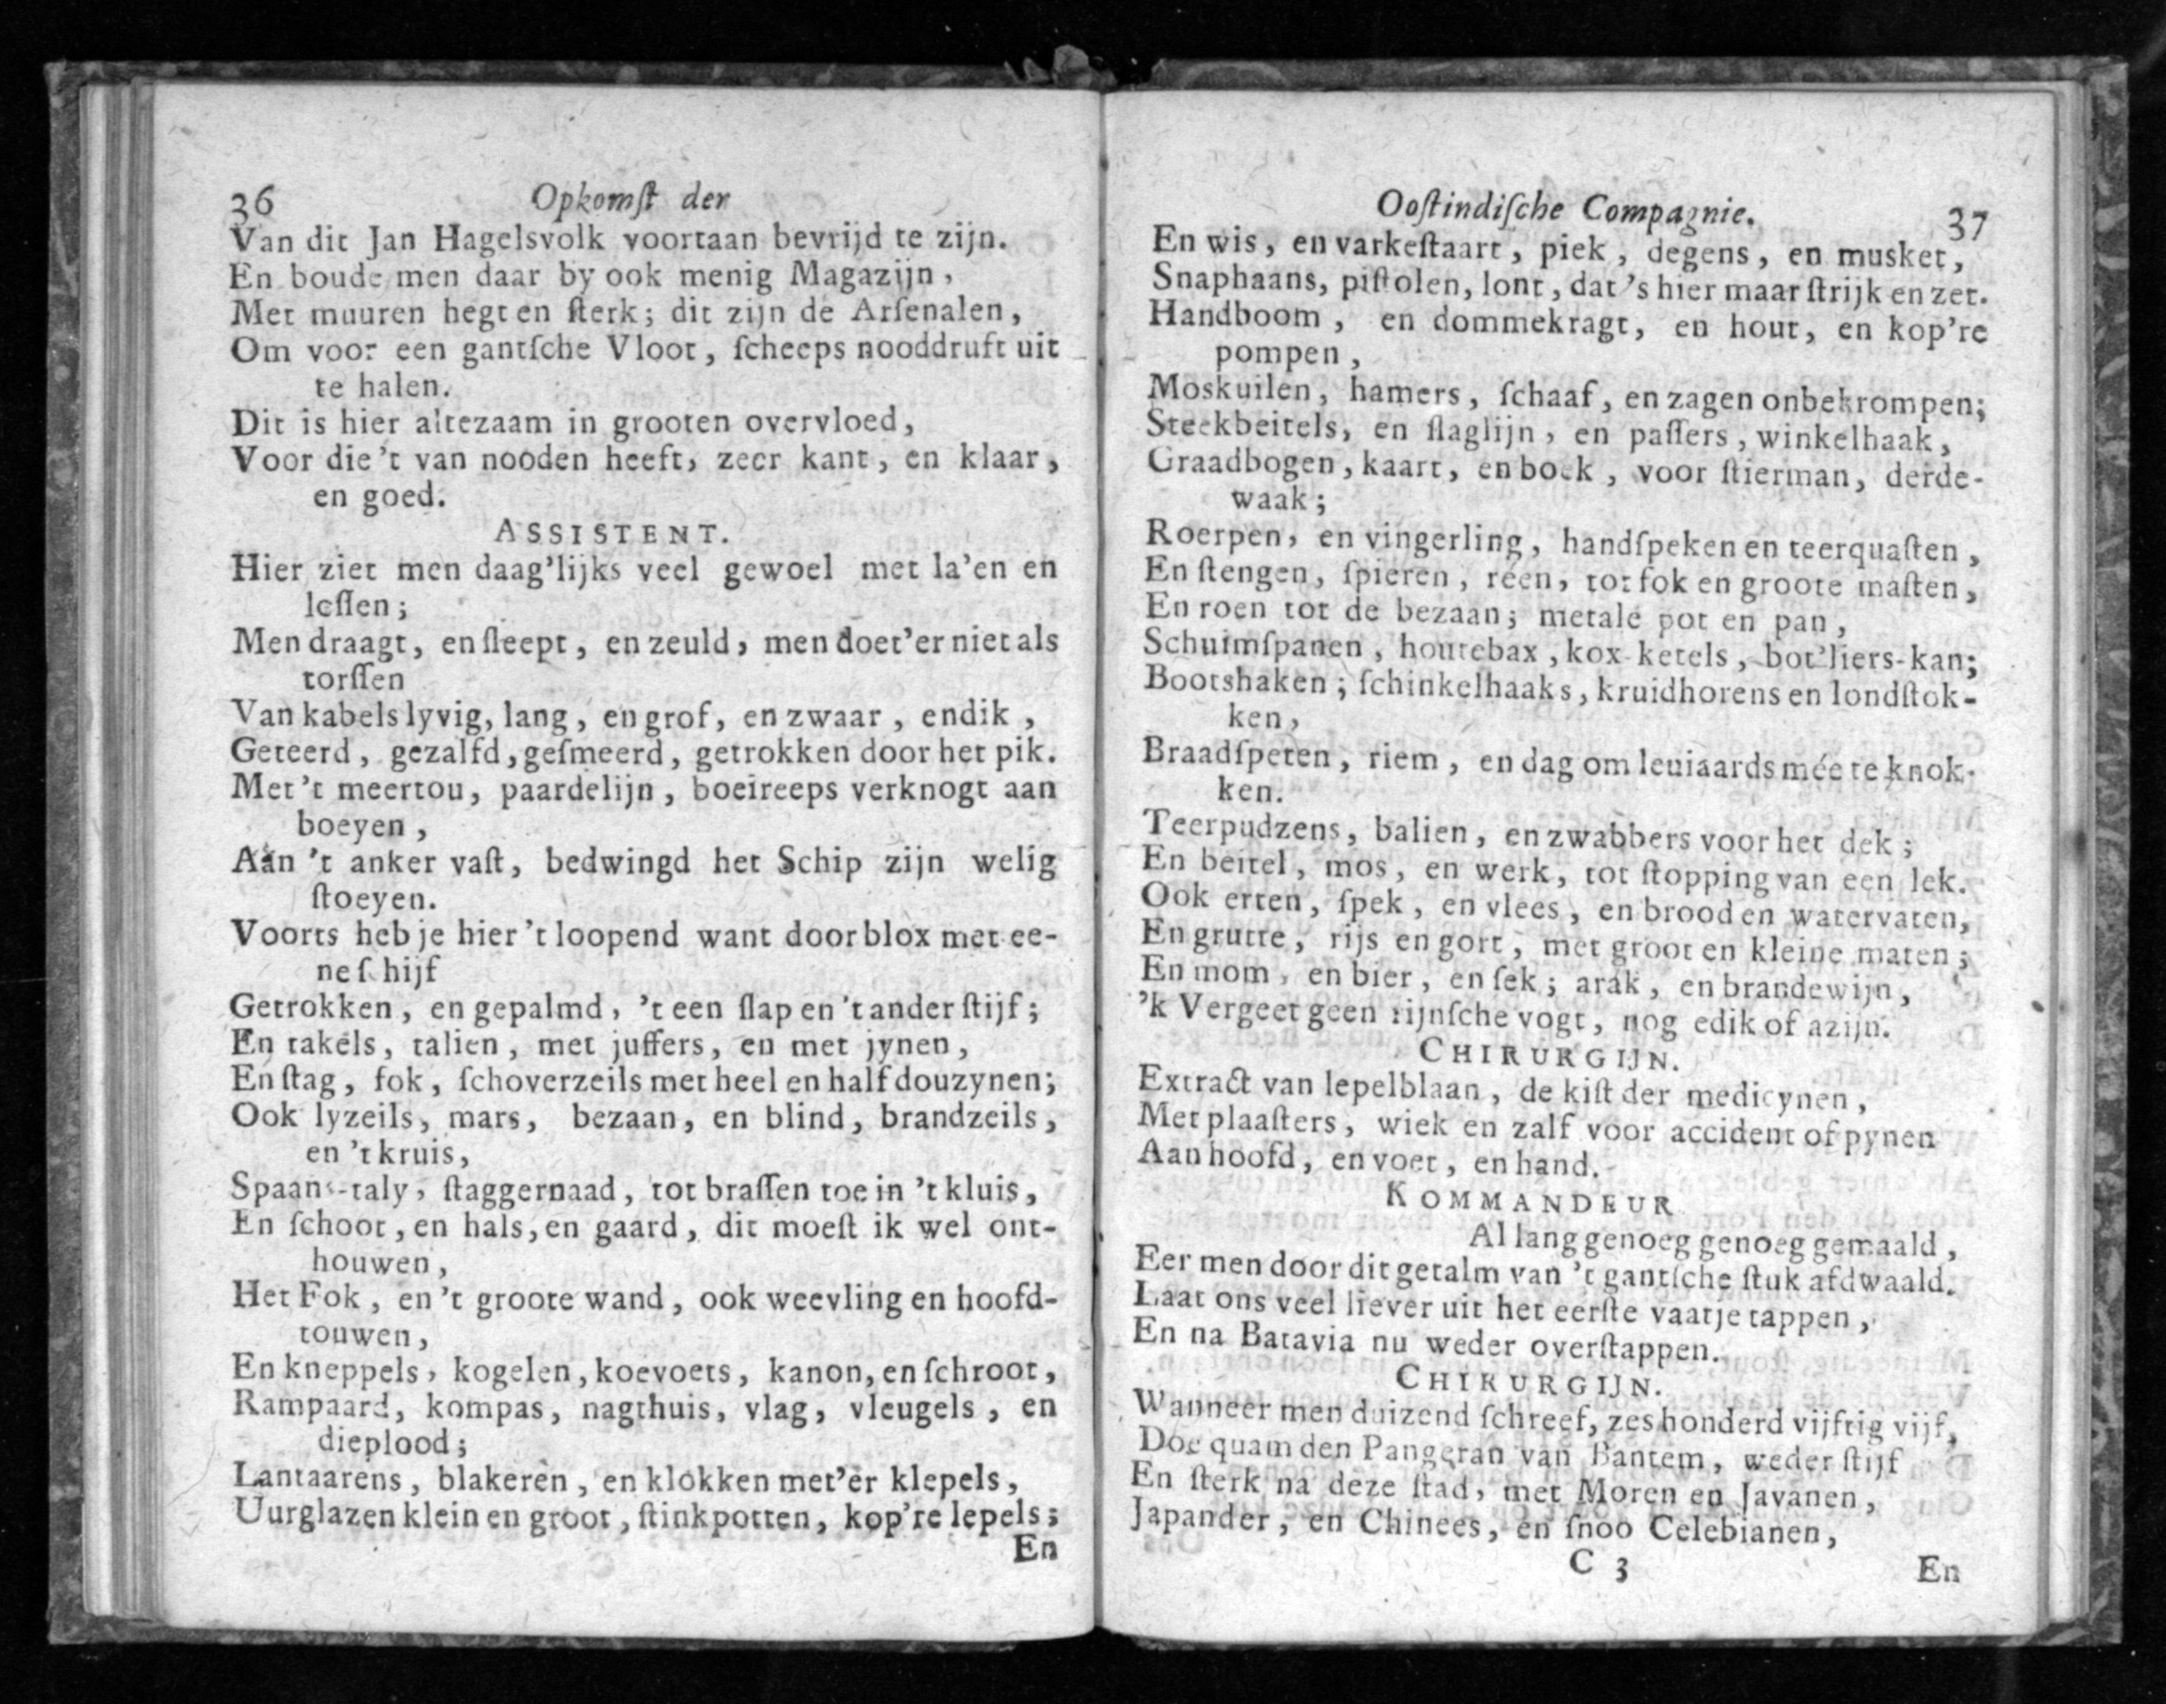 36 Opkomſt der
Van dit Jan Hagelsvolk voortaan bevrijd te zijn.
En boude men daar by ook menig Magazijn,
Met muuren hegt en ſterk; dit zijn de Arſenalen,
Om voor een gantſche Vloot, ſcheeps nooddruft uit
te halen.
Dit is hier altezaam in grooten overvloed,
Voor die 't van nooden heeft, zeer kant, en klaar,
en goed.
ASSISTENT.
Hier ziet men daag'lijks veel gewoel met la'en en
leſſen;
Men draagt, en ſleept, en zeuld, men doet'er niet als
torſſen
Van kabels lyvig, lang, en grof, en zwaar, en dik,
Geteerd, gezalfd, geſmeerd, getrokken door het pik.
Met 't meertou, paardelijn, boeireeps verknogt aan
boeyen,
Aan 't anker vaſt, bedwingd het Schip zijn welig
ſtoeyen.
Voorts heb je hier 't loopend want door blox met ee-
ne ſchijf
Getrokken, en gepalmd, 't een ſlap en 't ander ſtijf;
En takels, talien, met juffers, en met jynen,
En ſtag, fok, ſchoverzeils met heel en half douzynen;
Ook lyzeils, mars, bezaan, en blind, brandzeils,
en 't kruis,
Spaans-taly, ſtaggernaad, tot braſſen toe in 't kluis,
En ſchoot, en hals, en gaard, dit moeſt ik wel ont-
houwen,
Het Fok, en 't groote wand, ook weevling en hoofd-
touwen,
En kneppels, kogelen, koevoets, kanon, en ſchroot,
Rampaard, kompas, nagthuis, vlag, vleugels, en
dieplood;
Lantaarens, blakeren, en klokken met'er klepels,
Uurglazen klein en groot, ſtinkpotten, kop're lepels;
En
Ooſtindiſche Compagnie. 37
En wis, en varkeſtaart, piek, degens, en musket,
Snaphaans, piſtolen, lont, dat's hier maar ſtrijk en zet.
Handboom, en dommekragt, en hout, en kop're
pompen,
Moskuilen, hamers, ſchaaf, en zagen onbekrompen;
Steekbeitels, en ſlaglijn, en paſſers, winkelhaak,
Graadbogen, kaart, en boek, voor ſtierman, derde-
waak;
Roerpen, en vingerling, handſpeken en teerquaſten,
En ſtengen, ſpieren, réen, tot fok en groote maſten,
En roen tot de bezaan; metale pot en pan,
Schuimſpanen, houtebax, kox-ketels, bot'liers-kan;
Bootshaken; ſchinkelhaaks, kruidhorens en londſtok-
ken,
Braadſpeten, riem, en dag om leuiaards mée te knok-
ken.
Teerpudzens, balien, en zwabbers voor het dek;
En beitel, mos, en werk, tot ſtopping van een lek.
Ook erten, ſpek, en vlees, en brood en watervaten,
En grutte, rijs en gort, met groot en kleine maten;
En mom, en bier, en ſek; arak, en brandewijn,
'k Vergeet geen rijnſche vogt, nog edik of azijn.
CHIRURGIJN.
Extract van lepelblaan, de kiſt der medicynen,
Met plaaſters, wiek en zalf voor accident of pynen
Aan hoofd, en voet, en hand.
KOMMANDEUR
Al lang genoeg genoeg gemaald,
Eer men door dit getalm van 't gantſche ſtuk afdwaald.
Laat ons veel liever uit het eerſte vaatje tappen,
En na Batavia nu weder overſtappen.
CHIRURGIJN.
Wanneer men duizend ſchreef, zes honderd vijftig vijf,
Doe quam den Pangeran van Bantem, weder ſtijf
En ſterk na deze ſtad, met Moren en Javanen,
Japander, en Chinees, en ſnoo Celebianen,
C 3 En